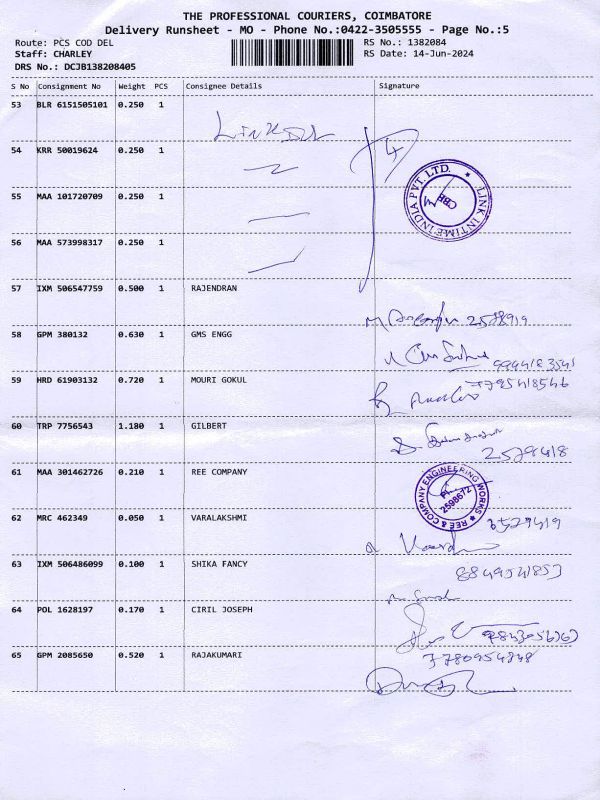 THE PROFESSIONAL COURIERS, COIMBATORE
Delivery Runsheet - MO - Phone No.:0422-3505555 - Page No.:5
Route: PCS COD DEL
Staff: CHARLEY
DRS No.: DCJB138208405
RS No.: 1382084
RS Date: 14-Jun-2024
S No Consignment No Weight PCS Consignee Details Signature
53 BLR 6151505101 0.250 1
54 KRR 50019624 0.250 1
LINK INTIME INDIA PVT. LTD.
CBE
55 MAA 101720709 0.250 1
56 MAA 573998317 0.250 1
57 IXM 506547759 0.500 1 RAJENDRAN
58 GPM 380132 0.630 1 GMS ENGG
59 HRD 61903132 0.720 1 MOURI GOKUL
7795418546
60 TRP 7756543 1.180 1 GILBERT
61 MAA 301462726 0.210 1 REE COMPANY
REE & COMPANY ENGINEERING WORKS
62 MRC 462349 0.050 1 VARALAKSHMI
63 IXM 506486099 0.100 1 SHIKA FANCY
8849541853
64 POL 1628197 0.170 1 CIRIL JOSEPH
65 GPM 2085650 0.520 1 RAJAKUMARI